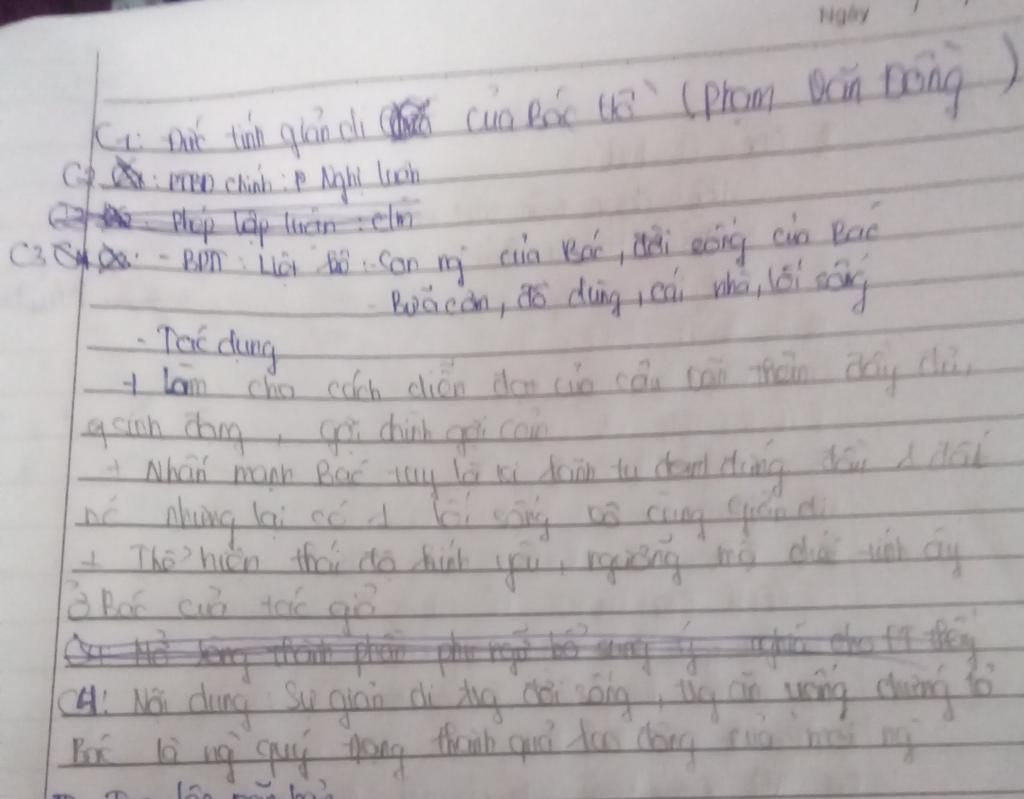 Ngày / /
C1: Đức tính giản dị của Bác Hồ (Phạm Văn Đồng)
C2: PTBĐ chính: P Nghị luận
Phép lập luận: c/m
C3 - BPTT: Liệt kê: Con ng của Bác, đời sống của Bác
Bữa cơm, đồ dùng, cái nhà, lối sống
- Tác dụng
+ Làm cho cách diễn đạt của câu văn thêm đầy đủ,
sinh động, gợi hình gợi cảm
+ Nhấn mạnh Bác tuy là vị lãnh tụ đứng đầu 1 đất
nc nhưng lại có 1 lối sống vô cùng giản dị
+ Thể hiện thái độ kính yêu, ngưỡng mộ đức tính ấy
ở Bác của tác giả
thành phần phụ ngữ bổ sung ý nghĩa cho
C4: Nội dung Sự giản dị trg đời sống, trg ăn uống chứng tỏ
Bác là ng quý trọng thành quả lao động của mỗi ng